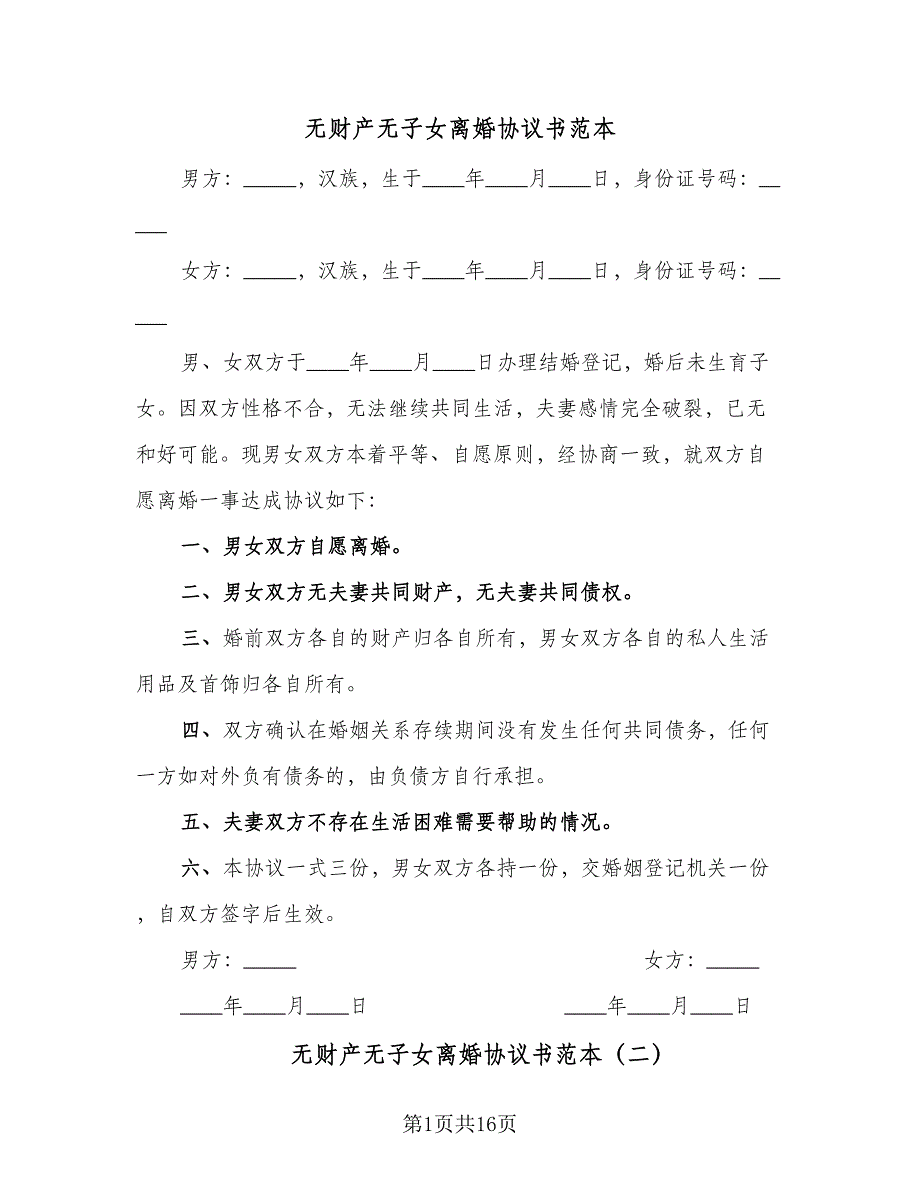 无财产无子女离婚协议书范本
男方：_____，汉族，生于____年____月____日，身份证号码：__
___
女方：_____，汉族，生于____年____月____日，身份证号码：__
___
男、女双方于____年____月____日办理结婚登记，婚后未生育子
女。因双方性格不合，无法继续共同生活，夫妻感情完全破裂，已无
和好可能。现男女双方本着平等、自愿原则，经协商一致，就双方自
愿离婚一事达成协议如下：
一、男女双方自愿离婚。
二、男女双方无夫妻共同财产，无夫妻共同债权。
三、婚前双方各自的财产归各自所有，男女双方各自的私人生活
用品及首饰归各自所有。
四、双方确认在婚姻关系存续期间没有发生任何共同债务，任何
一方如对外负有债务的，由负债方自行承担。
五、夫妻双方不存在生活困难需要帮助的情况。
六、本协议一式三份，男女双方各持一份，交婚姻登记机关一份
，自双方签字后生效。
男方：_____ 女方：_____
____年____月____日 ____年____月____日
无财产无子女离婚协议书范本（二）
第1页共16页